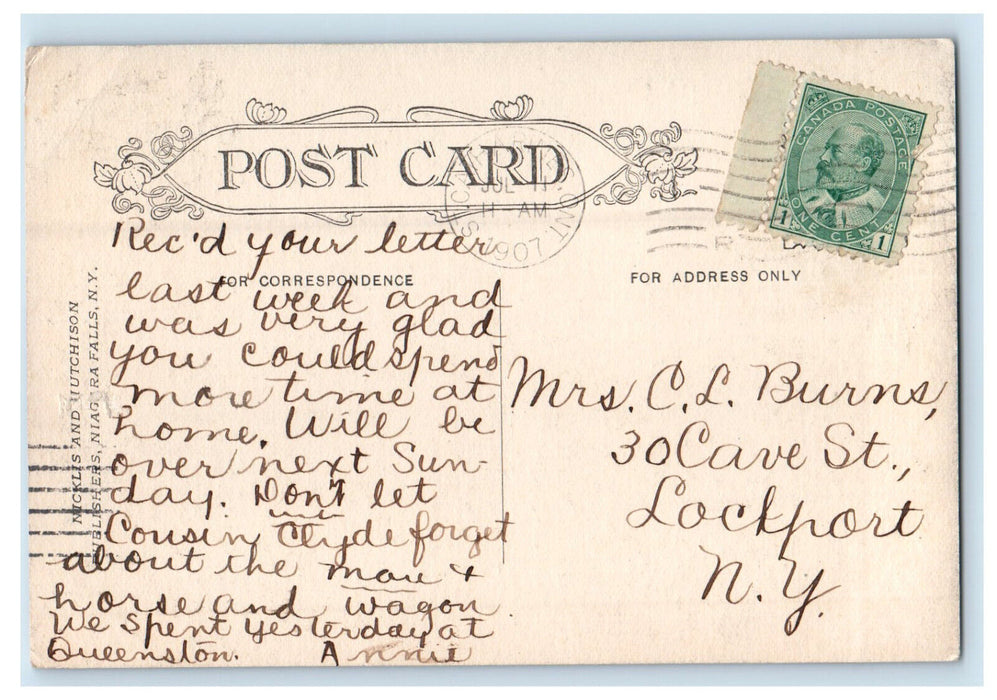 POST CARD
JUL 11
11 AM
1907
ONT
CANADA POSTAGE
ONE CENT
1 1
FOR CORRESPONDENCE
FOR ADDRESS ONLY
NICKLIS AND HUTCHISON
PUBLISHERS, NIAGARA FALLS, N.Y.
Rec'd your letter
last week and
was very glad
you could spend
more time at
home. Will be
over next Sun-
day. Don't let
Cousin Clyde forget
about the man +
horse and wagon
We spent yesterday at
Queenston. Annie
Mrs. C. L. Burns,
30 Cave St.,
Lockport
N. Y.